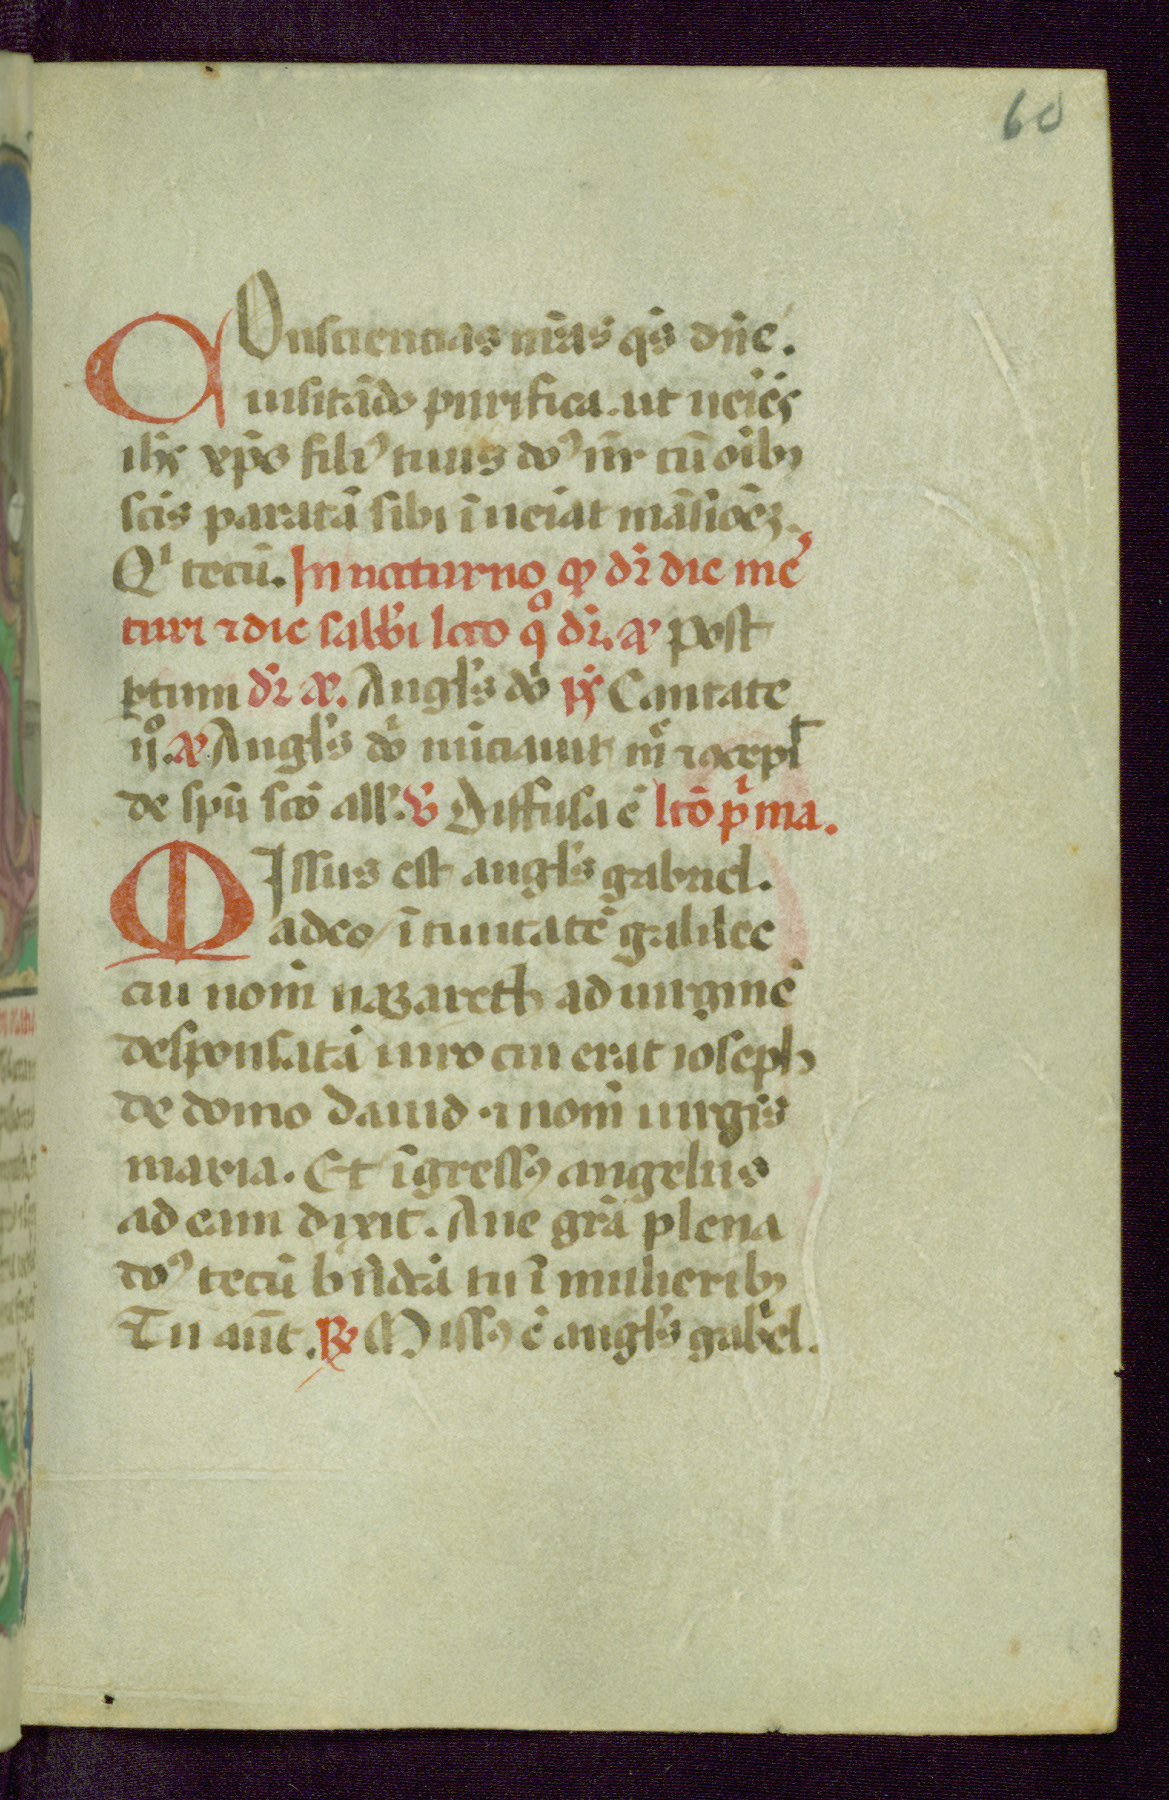 60
COnsciencias nr̄as q̄s dn̄e.
uisitādo purifica. ut ueiēs
ihs xp̄s filiꝰ tuus doꝰ nr̄ cū oībꝫ
scīs paratā sibi īueīat māsioēꝫ.
Qⁱ tecū. In nocturno qᷓ dr̄ die mer
curi ⁊ die sabb̄i lcco qͦ dr̄. añ post
ꝑtum dr̄ añ. Angl̄s dō pͥs Cantate
ijͦ. añ Angl̄s dō nūciauit mͤ ⁊ ꝯcepͭ
de spū scō all̄. ℣ Diffusa ē lcō pͥma.
MIssus est angl̄s gabriel.
a deo ī ciuitatē galilee
cui nom̄ nazareth ad uirginē
desponsatā uiro cui erat ioseph
de domo dauid ⁊ nom̄ uirgīs
maria. Et īgressꝰ angelus
ad eam dixit. Aue gr̄a plena
doꝰ tecū bn̄dc̄a tu ī mulieribꝫ
Tu aūt. ℟ Missꝰ ē angl̄s gab̄el.